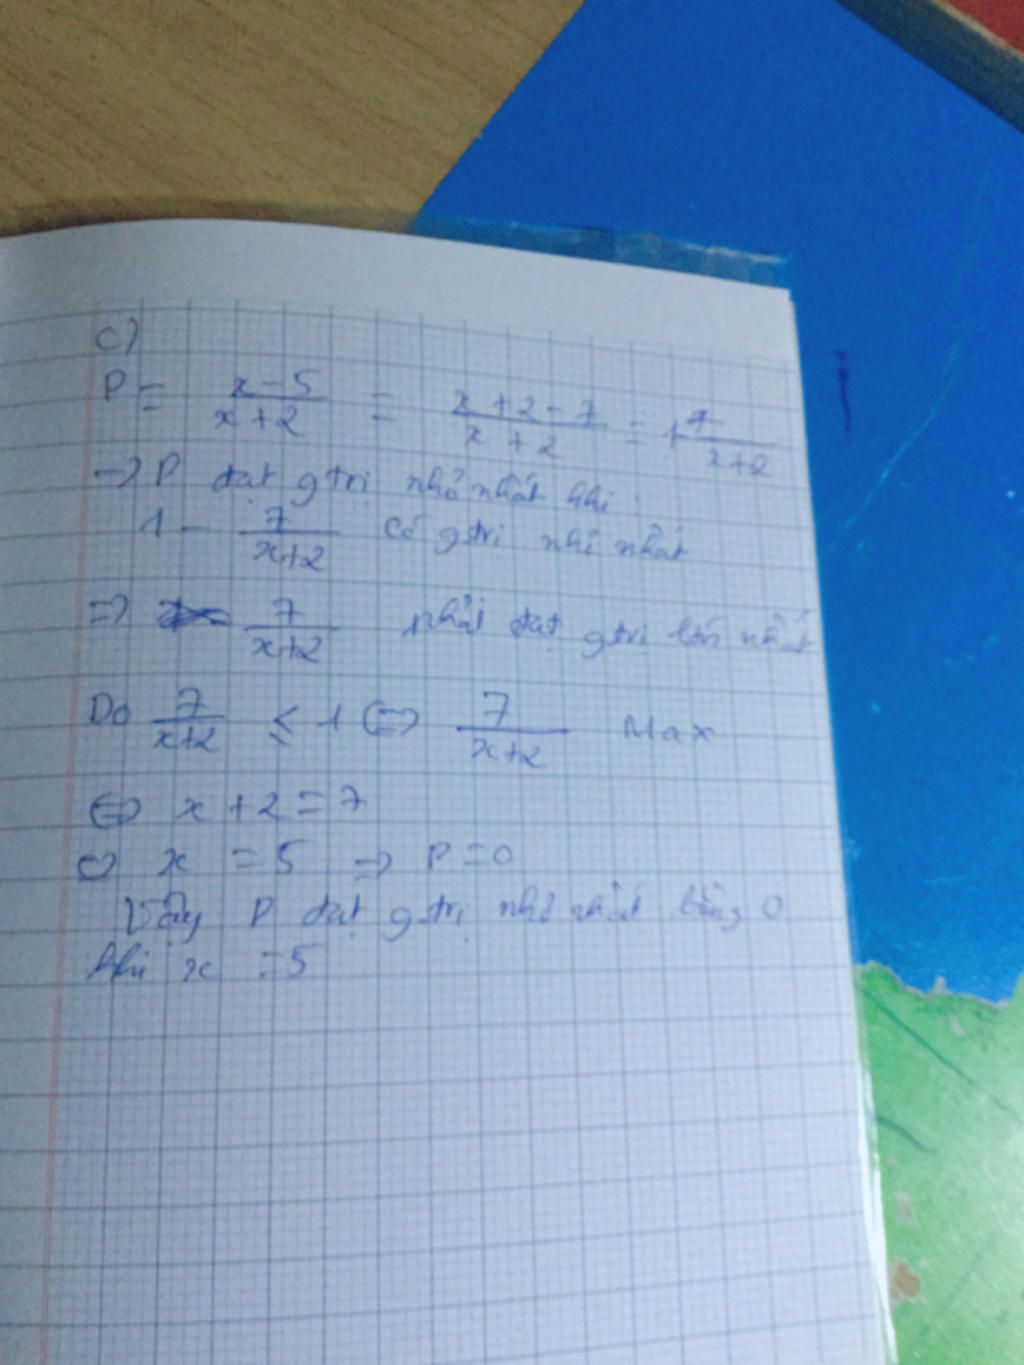 c)
P = x-5/x+2 = x+2-7/x+2 = 1 7/x+2
→ P đạt gtrị nhỏ nhất khi :
1 - 7/x+2 có gtrị nhỏ nhất
=> 7/x+2 phải đạt gtrị lớn nhất
Do 7/x+2 ≤ 1 <=> 7/x+2 Max
<=> x+2=7
<=> x = 5 => P=0
Vậy P đạt gtrị nhỏ nhất bằng 0
khi x = 5